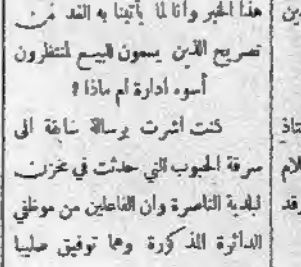 هذا الخبر وانا لما يأتينا به الغد من
تصريح الذين يسمون فهل ننتظرون
أسوء ادارة ام ماذا ؟
كنت اشرت برسالة سابقة الى
سرقة الحبوب التي حدثت في مخزن
لبلدية الناصرة وان الفاعلين من موظفي
الدائرة المذكورة وهما توفيق صليبا
ين
تاذ
لام
قد